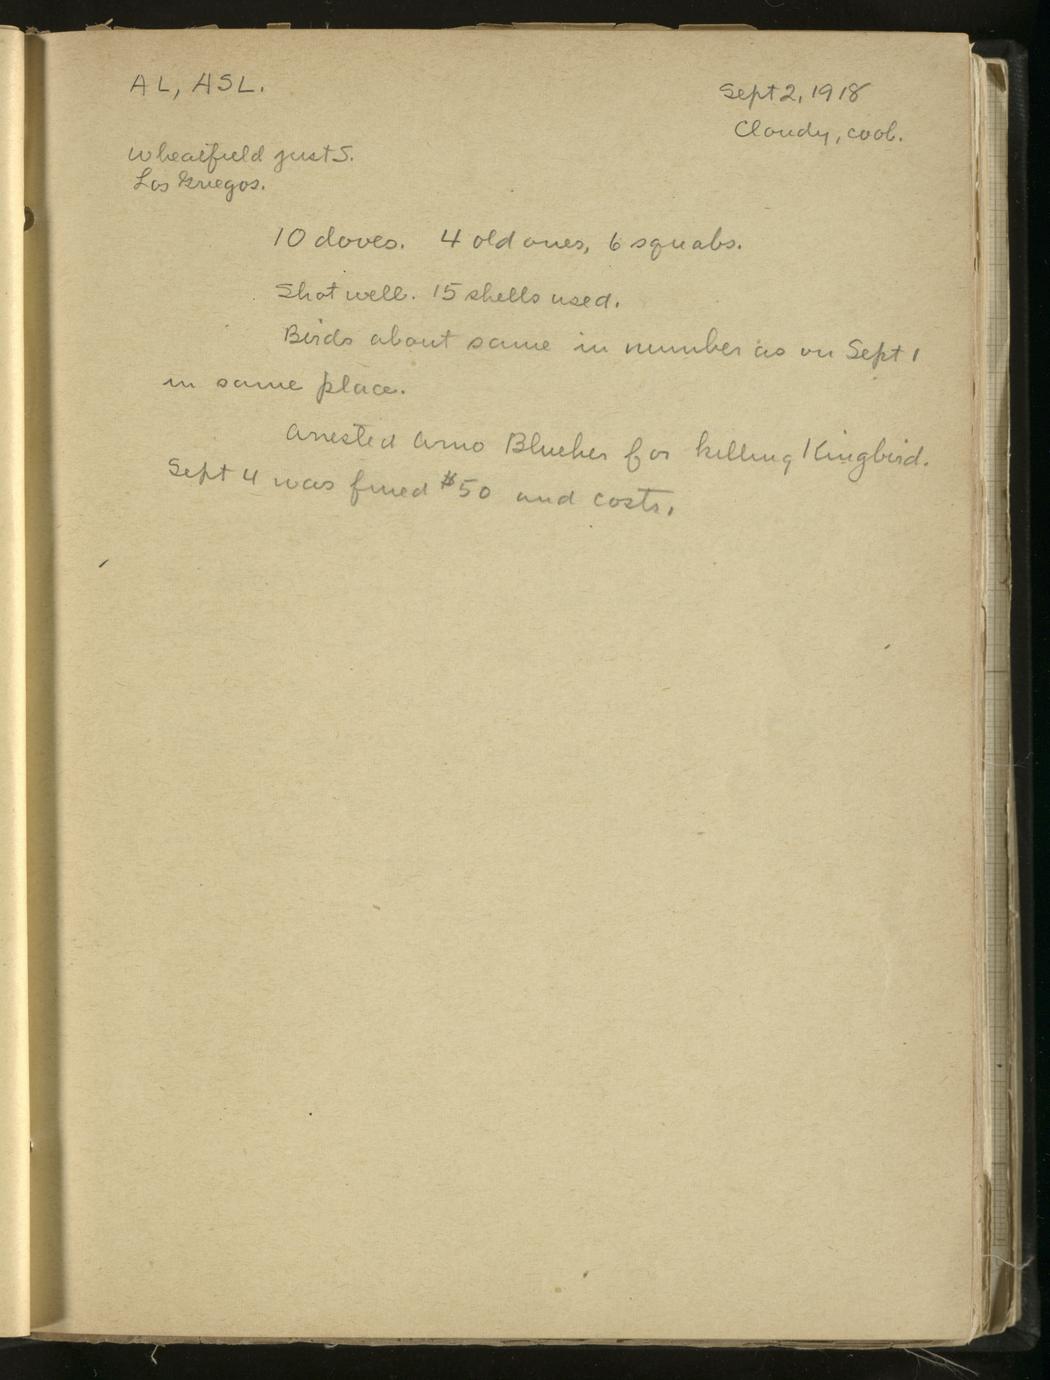 AL, HSL.
Sept 2, 1918
Cloudy, cool.
Wheatfield just S.
Los Griegos.
10 doves. 4 old ones, 6 squabs.
Shot well. 15 shells used.
Birds about same in number as on Sept 1
in same place.
Arrested Arno Blueher for killing Kingbird.
Sept 4 was fined $50 and costs.